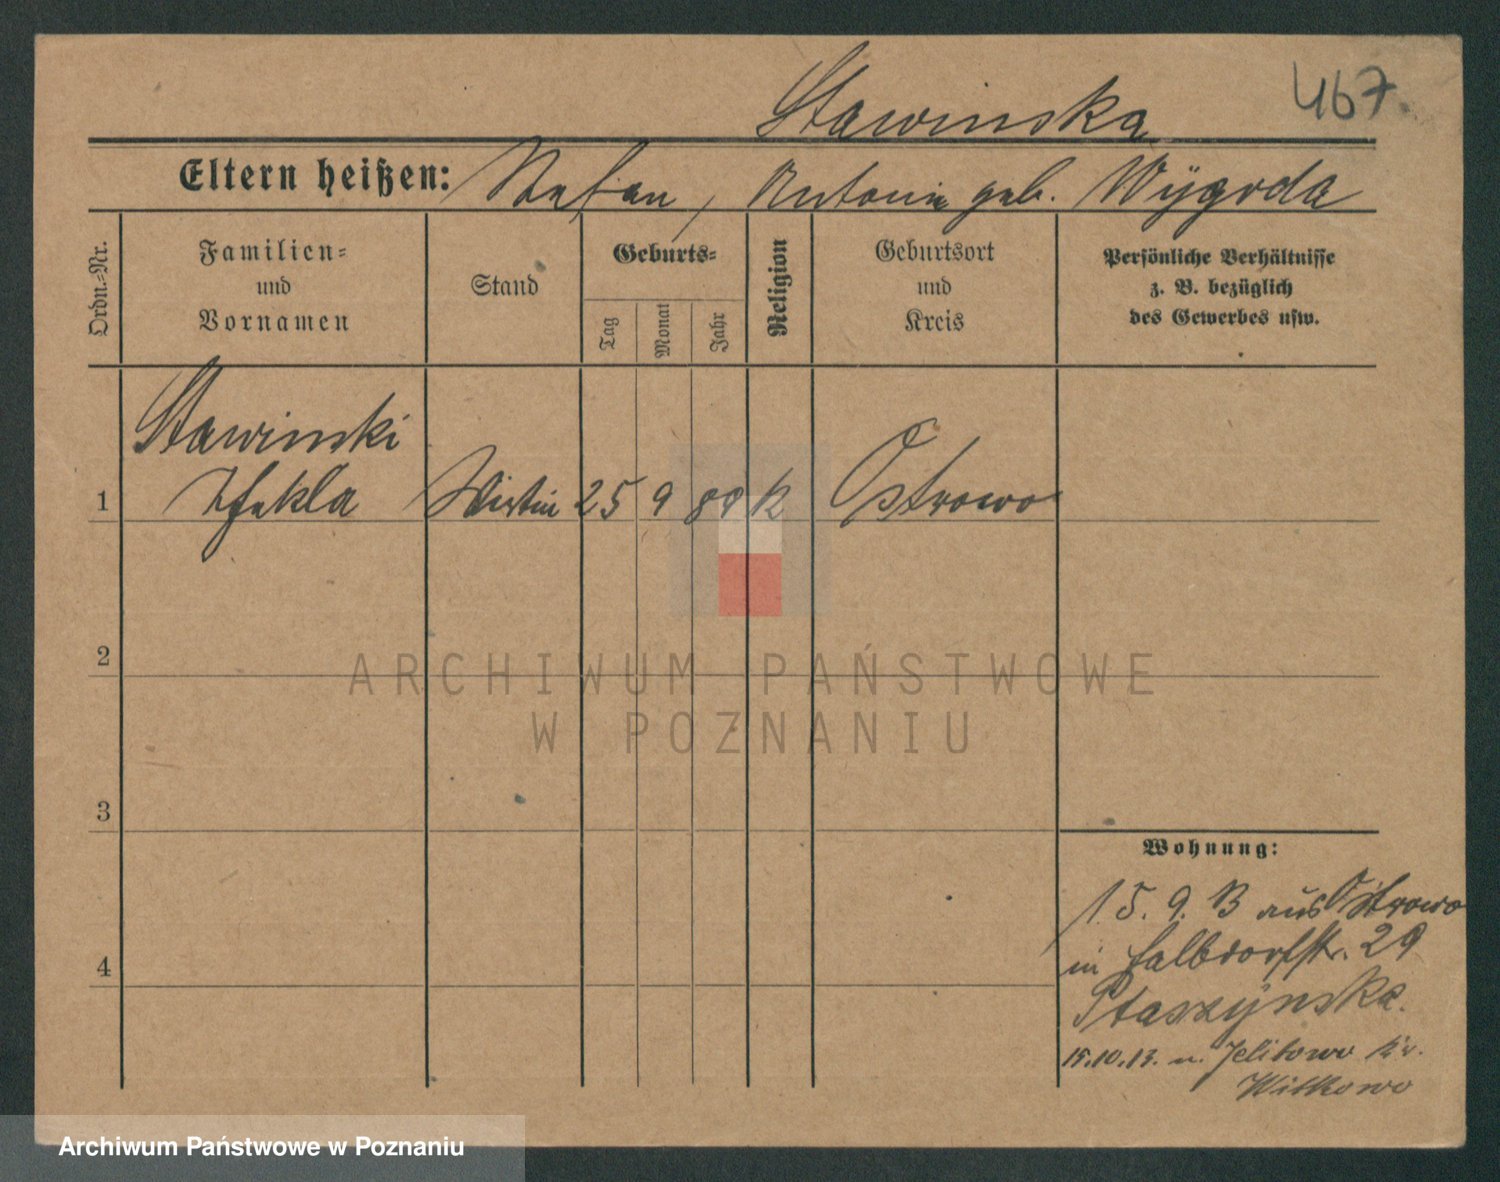 467.
Stawinska
Eltern heißen: Stefan, Antonie geb. Wÿgoda
Ordn.-Nr.
Familien-
und
Vornamen
Stand
Geburts-
Tag
Monat
Jahr
Religion
Geburtsort
und
Kreis
Persönliche Verhältnisse
z. B. bezüglich
des Gewerbes usw.
Stawinski
1 Thekla Wirtin 25 9 89 K Ostrowo
2
3
4
Wohnung:
15. 9. 13 aus Ostrowo
in Halbdorfstr. 29
Ptaszÿnska.
15.10.13. n. Jelitowo Kr.
Witkowo
ARCHIWUM PAŃSTWOWE
W POZNANIU
Archiwum Państwowe w Poznaniu